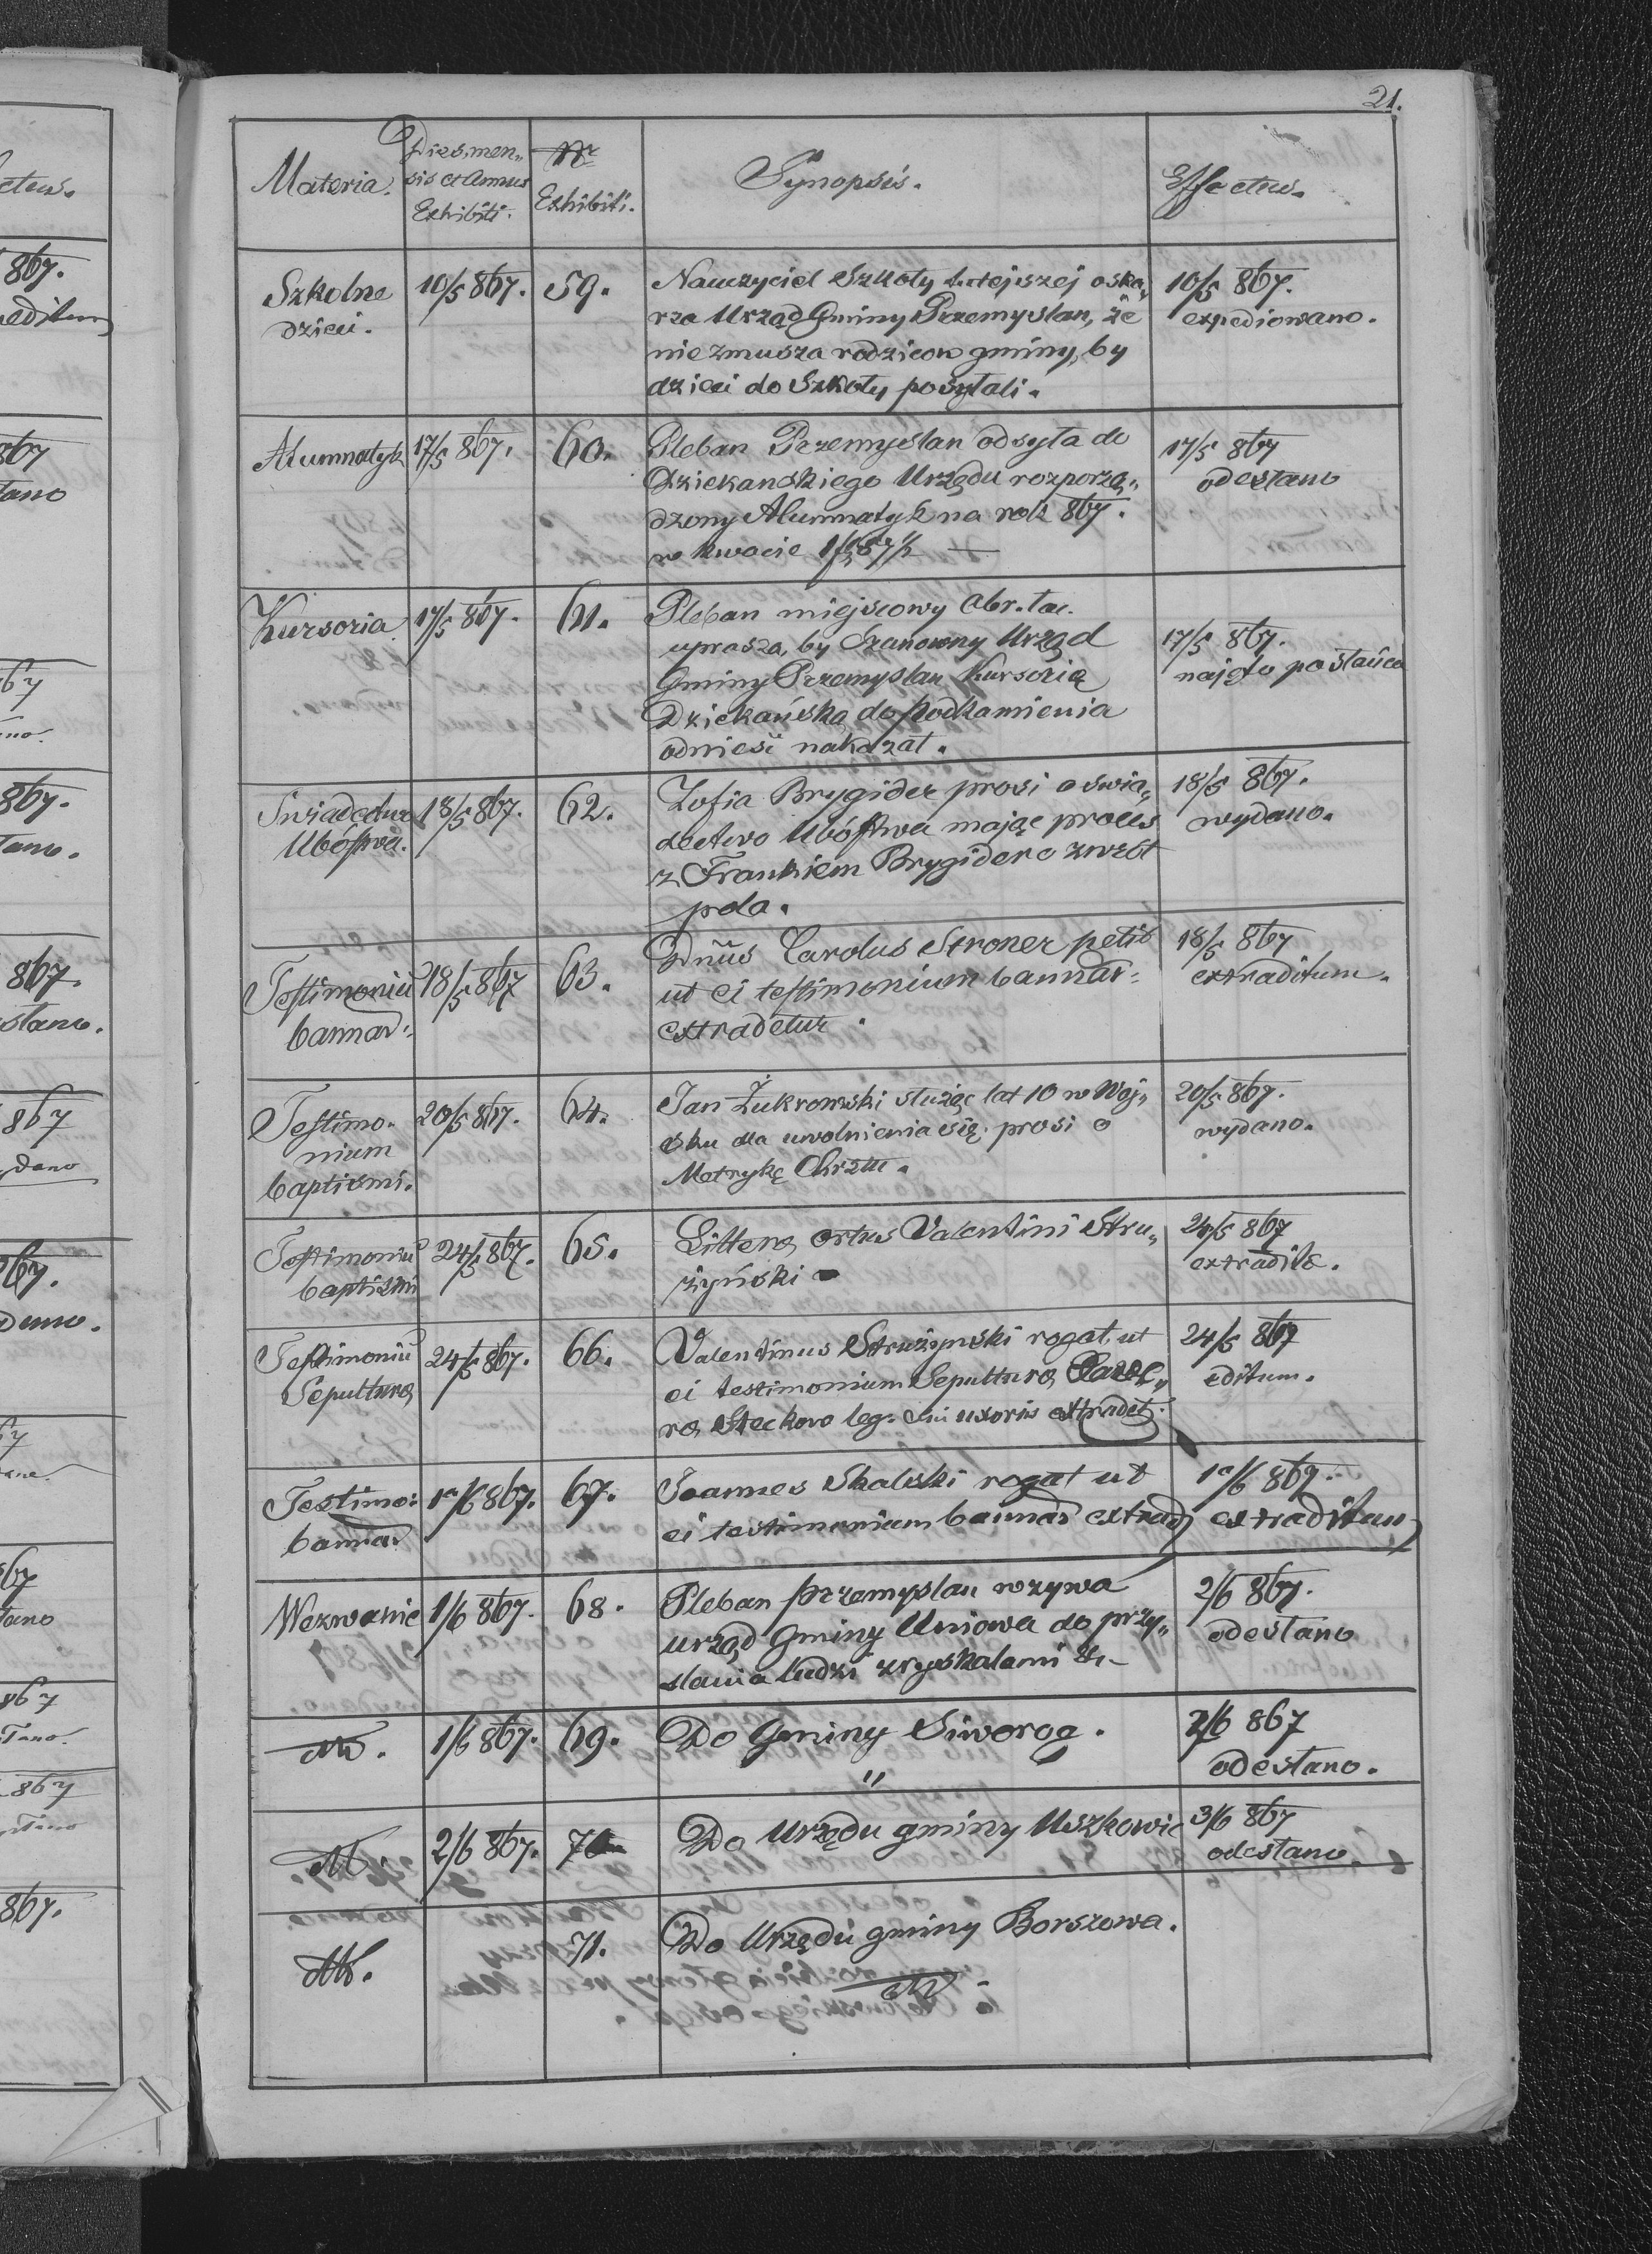 21.
Materia.
Dies, men„
sis et Annus
Exhibiti.
Nr
Exhibiti.
Synopsis.
Effectus.
Szkolne
dzieci.
10/5 867.
59.
Nauczyciel Szkoły tutejszej oska„
rza Urząd Gminy Przemyslan, że
nie zmusza rodziców gminy, by
dzieci do Szkoły posyłali.
10/5 867.
expediowano.
Alumnatyk
17/5 867.
60.
Pleban Przemyslan odsyła do
Dziekanskiego Urzędu rozporzą„
dzony Alumnatyk na rok 867.
w kwocie
17/5 867
odesłano
Kursoria.
17/5 867.
61.
Pleban miejscowy obr. łac.
uprasza, by Szanowny Urząd
Gminy Przemyslan Kursorię
Dziekańską do Podkamienia
odnieść nakazał.
17/5 867.
najęto posłańca
Świadectwo
Ubóstwa.
18/5 867.
62.
Zofia Brygider prosi o świa„
dectwo Ubóstwa mając proces
z Frankiem Brygider o zwrót
pola.
18/5 867.
wydano.
Testimoniū
bannar:
18/5 867
63.
Dnūs Carolus Stroner petit
ut ei testimonium bannar:
extradetur.
18/5 867
extraditum.
Testimo-
nium
baptismi.
20/5 867.
64.
Jan Żukrowski służąc lat 10 w Woj„
sku dla uwolnienia się prosi o
Metrykę Chrztu.
20/5 867.
wydano.
Testimoniū
baptismi
24/5 867.
65.
Litteræ ortus Valentini Stru„
żyński
24/5 867
extraditæ.
Testimoniū
Sepulturæ
24/5 867.
66.
Valentinus Strużynski rogat ut
ei testimonium Sepulturæ
ræ Steckow leg: sui uxoris extradet:
24/5 867
editum.
Testimo:
bannar
1a/6 867.
67.
Joannes Skalski rogat ut
ei testimonium bannar extrad
1a/6 867.
extraditum
Wezwanie
1/6 867.
68.
Pleban Przemyslan wzywa
urząd Gminy Uniowa do przy„
słania ludzi z ryskalami &-
2/6 867.
odesłano
dto.
1/6 867.
69.
Do Gminy Siworog.
"
2/6 867
odesłano.
dto.
2/6 867.
70
Do Urzędu gminy Uszkowic
3/6 867
odesłano.
dto.
71.
Do Urzędu gminy Borszowa.
dto